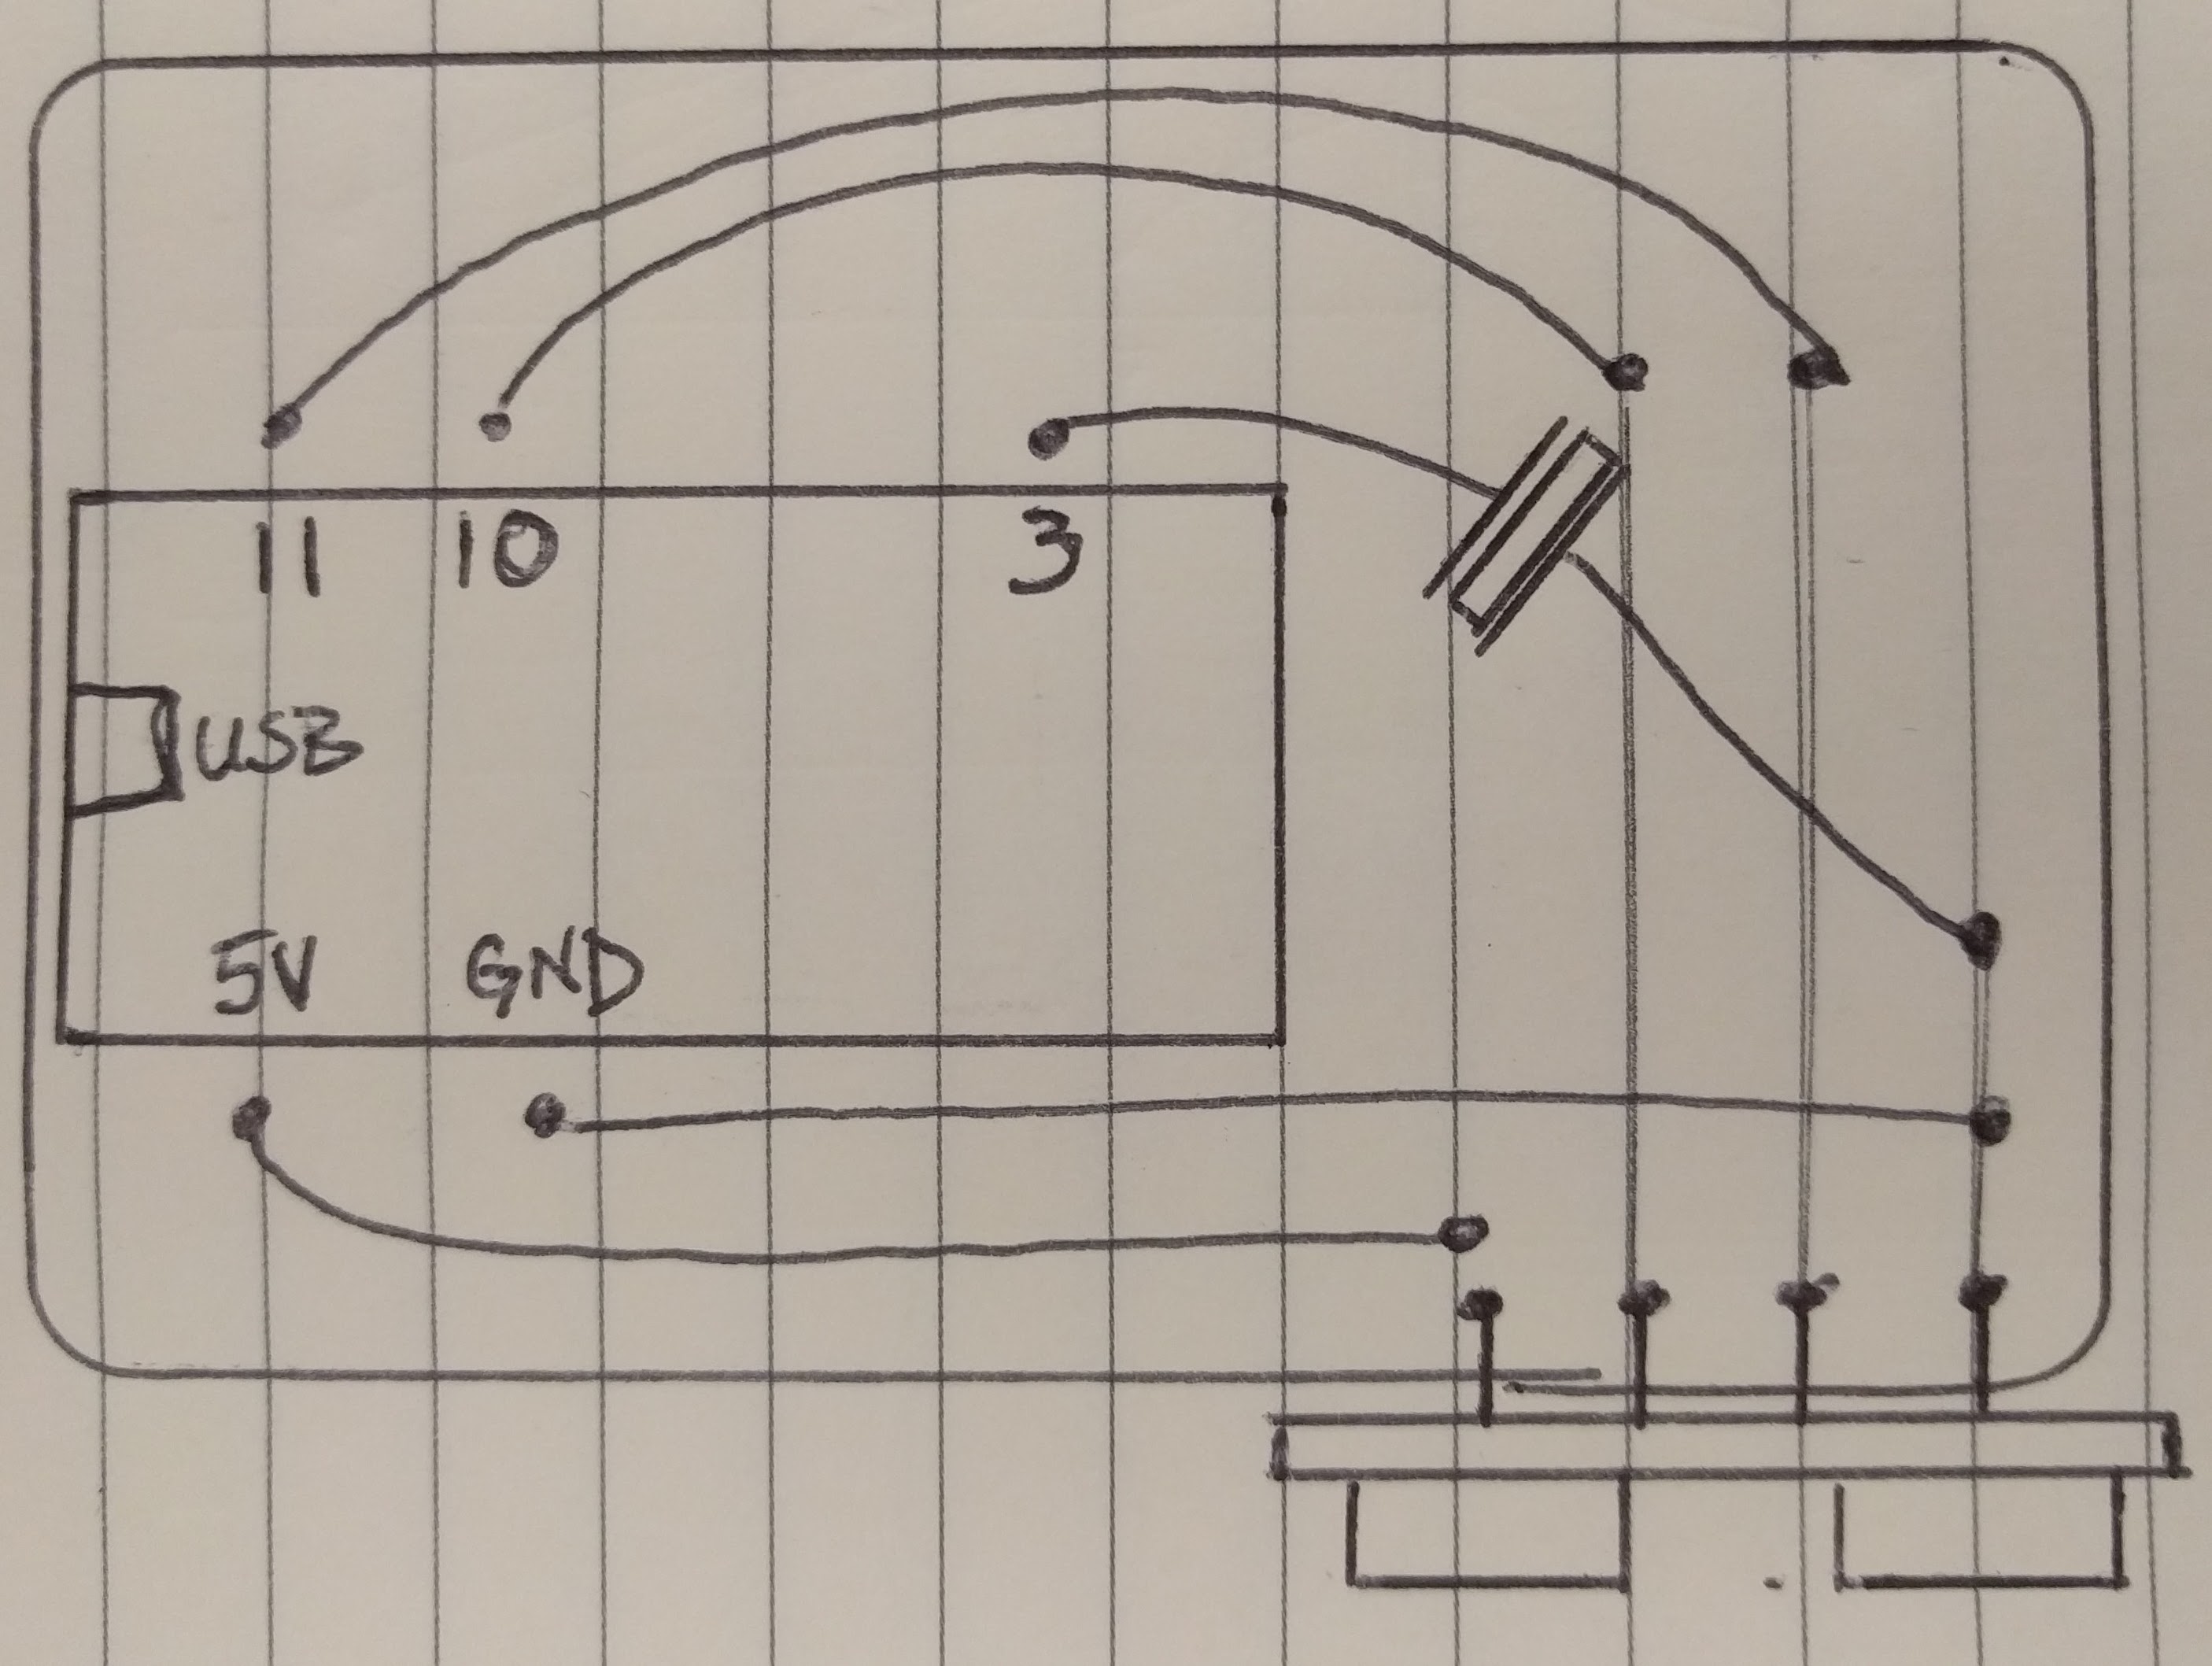 11 10 3
USB
5V GND